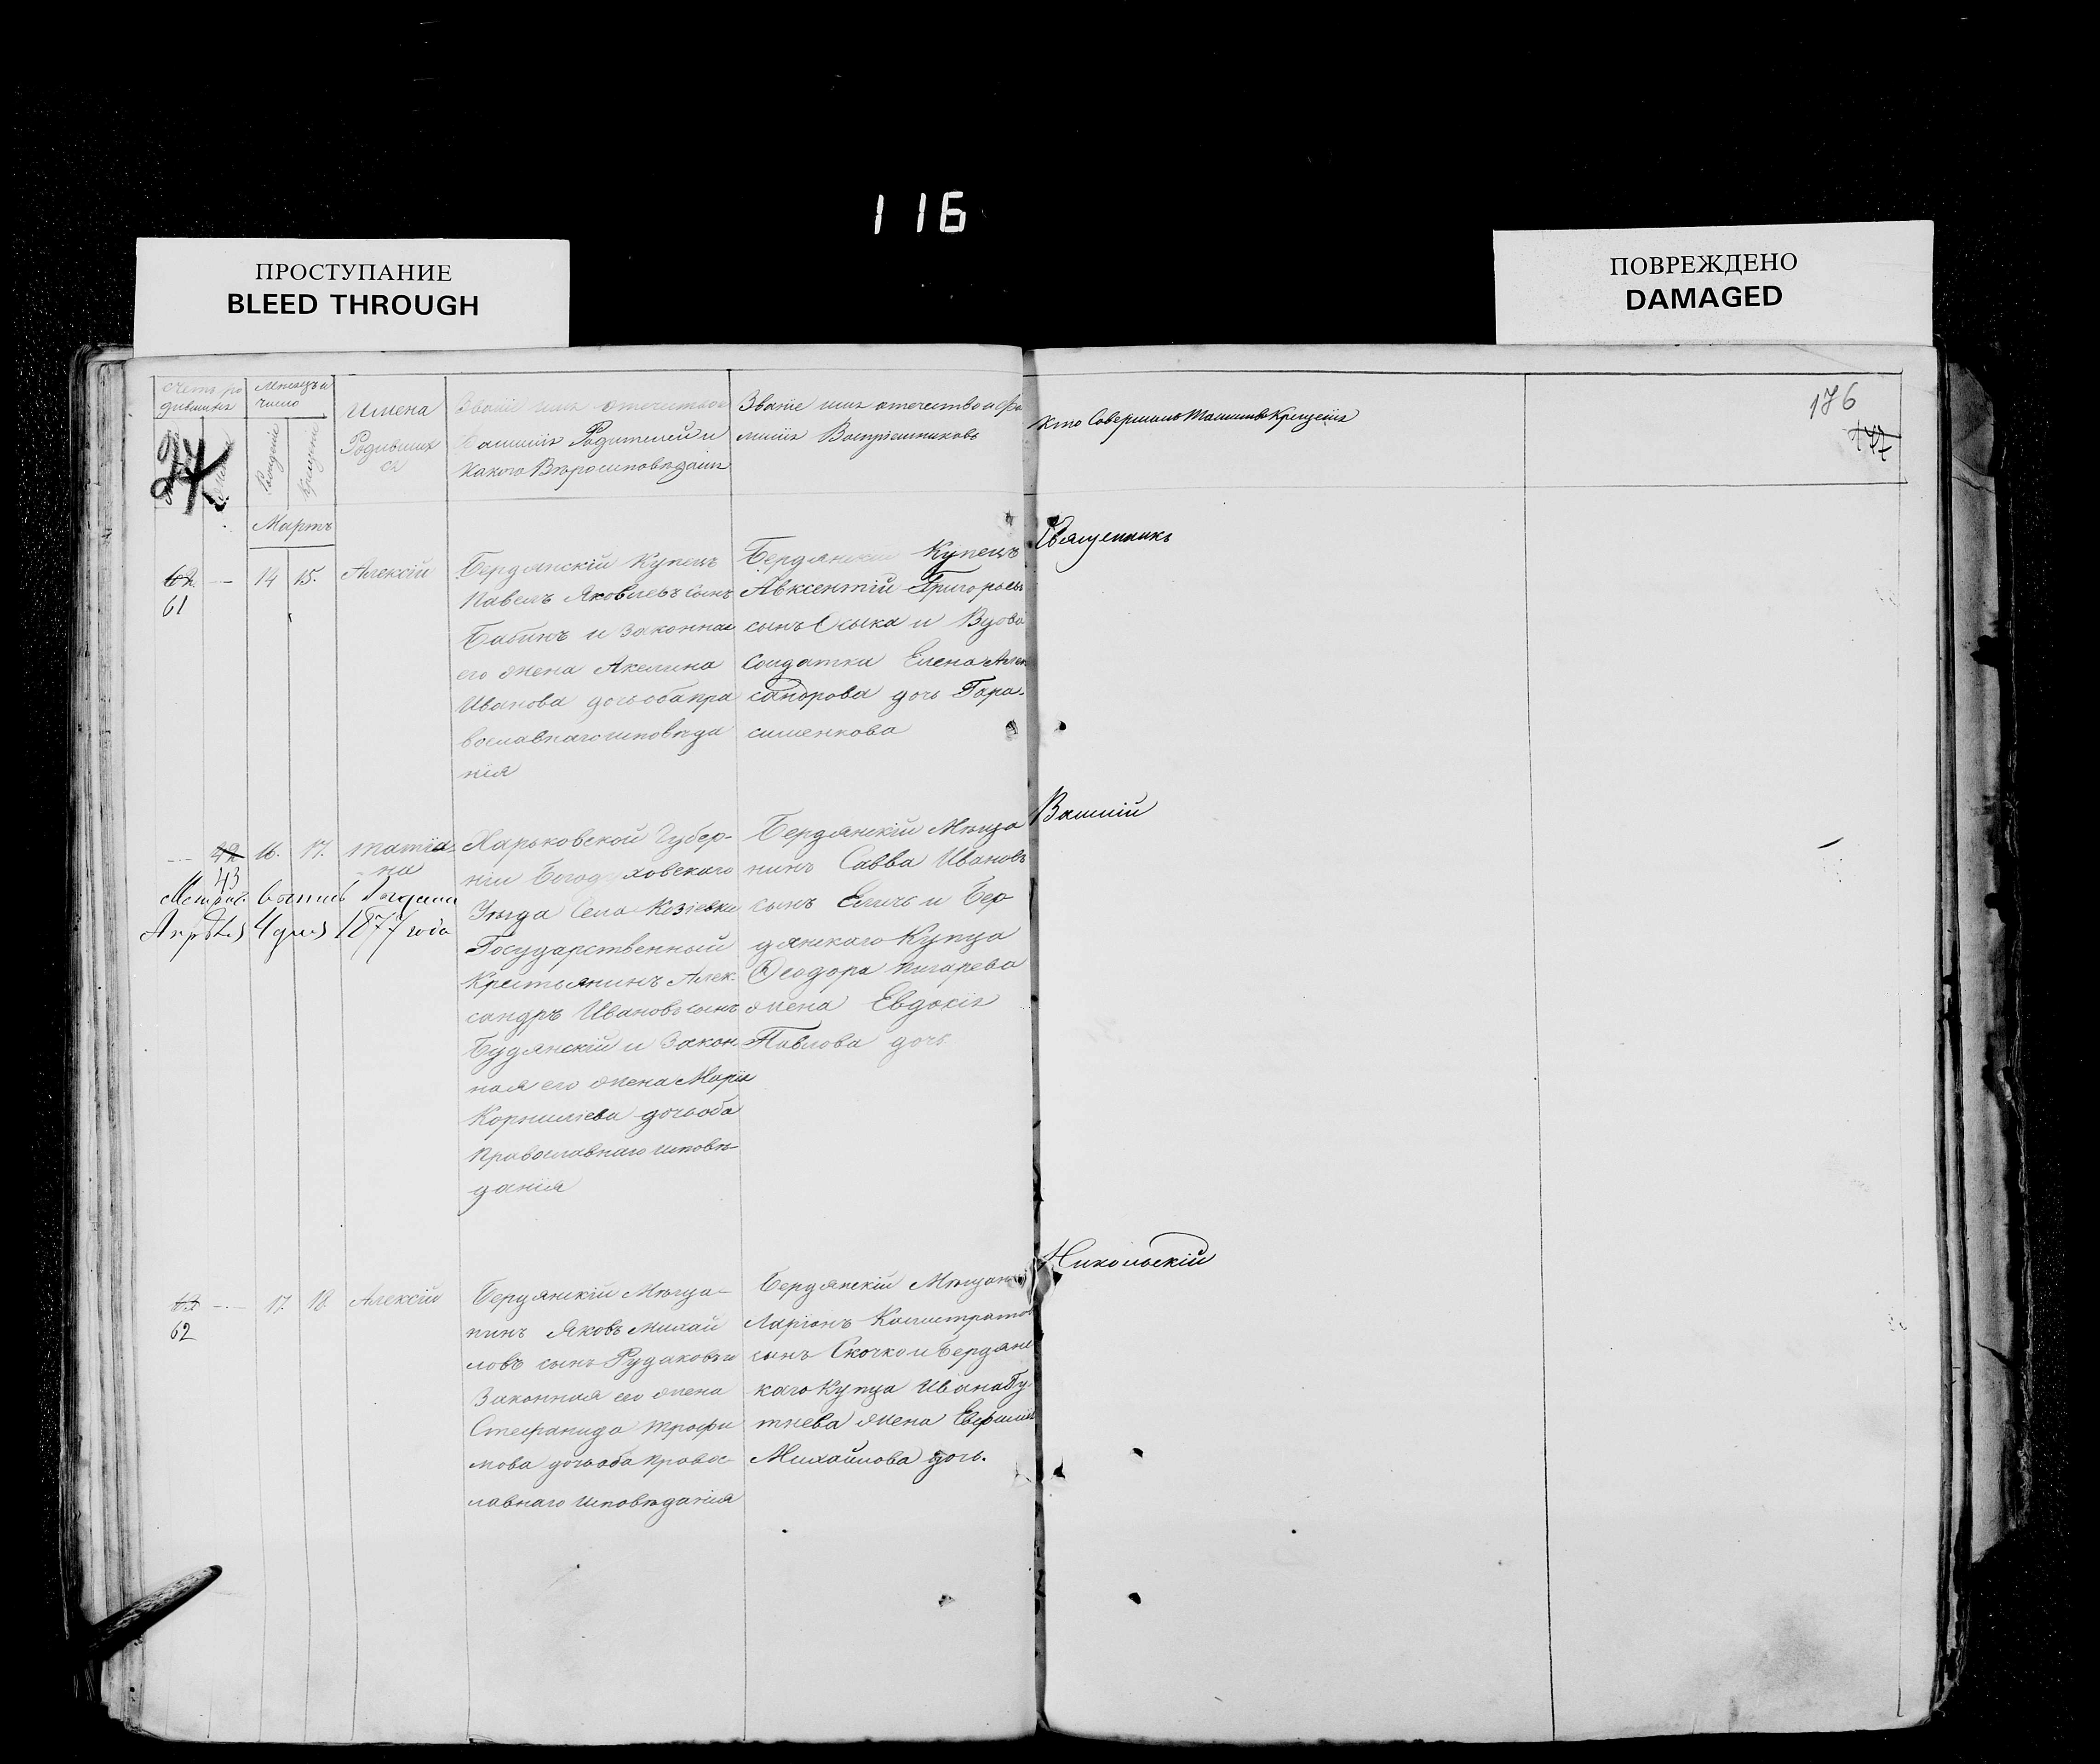 116
ПРОСТУПАНИЕ
BLEED THROUGH
ПОВРЕЖДЕНО
DAMAGED
Счетъ ро
дившихъ
Мѣсяцъ и
число
Рожденія
Крещенія
Имена
Родивших
ся
Званіе ихъ отечество
Фамиліи Родителей и
Какого Вѣроисповѣданія
Званіе имя отечество и фа
милія Воспріемниковъ
Кто Совершалъ Таинство Крещенія
176
177
24
Мартъ
62
61
14
15.
Алексій
Бердянскій Купецъ
Павелъ Яковлевъ сынъ
Бабинъ и Законная
его жена Акелина
Иванова дочь оба пра
вославнаго исповѣда
нія
Бердянскій Купецъ
Авксентій Григорьевъ
сынъ Осыка и Вдова
Солдатка Елена Алек
сандрова дочь Гара-
сименкова
Священникъ
42
43
16.
17.
Татіа-
на
Метрич.
выпись выдана
Апрѣля 4 дня 1877 года
Харьковской Губер-
ніи Богодуховскаго
Уѣзда Села Козіевки
Государственный
Крестьянинъ Алек-
сандръ Ивановъ сынъ
Будянскій и Закон
ная его жена Марія
Корниліева дочь оба
Православнаго исповѣ
данія
Бердянскій Мѣща
нинъ Савва Ивановъ
сынъ Еличь и Бер
дянскаго Купца
Ѳеодора Пигарева
жена Евдокія
Павлова дочь
Василій
63
62
17.
18.
Алексій
Бердянскій Мѣща-
нинъ Яковъ Михай
ловъ сынъ Рудаковъ и
Законная его жена
Стефанида Трофи
мова дочь оба Правос-
лавнаго исповѣданія
Бердянскій Мѣщан
Ларіонъ Калистратов
сынъ Скочко и Бердянс
каго Купца Ивана Бу
тнева жена Евфимія
Михайлова дочь.
Никольскій